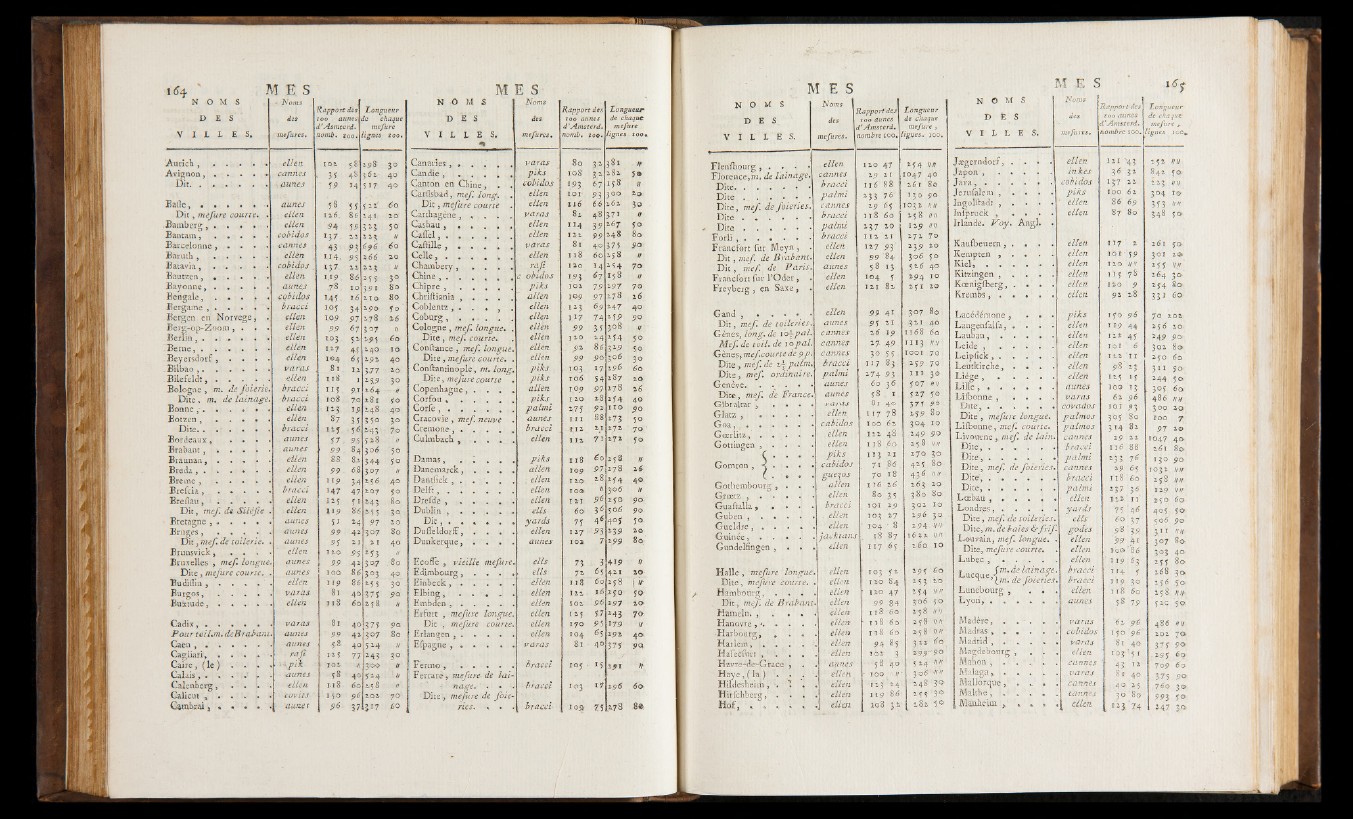 164 M E S
M E S
N O M S
D E S
V I L L E S.
Noms
des
mesures.
Rapport des
100 aunes
d'Amsterd.
nomb. 100.
Longueur
de chaque
mesure
lignes 100.
Aurich, ellen 102 58 298 30
Avignon, cannes 35 48 562 40
Dit. aunes 59 14 517 40
Basle, aunes 58 55 522 60
Dit, mesure courte. ellen 126. 86 241 20
Bamberg, ellen 94 59 323 50
Bantam, cobidos 137 22 223 "
Barcelonne, cannes 43 93 696 60
Baruth, ellen 114. 95 266 20
Batavia, cobidos 137 22 223 "
Bautzen, ellen 119 86 255 30
Bayonne, aunes 78 10 391 80
Bengale, cobidos 145 16 210 80
Bergame, bracci 105 34 290 50
Bergen en Norvege, ellen 109 97 278 26
Berg-op-Zoom, ellen 99 67 307 "
Berlin, ellen 103 52 295 60
Berne, ellen 127 45 240 10
Beyersdorf, ellen 104 65 292 40
Bilbao, varas 81 12 377 20
Bilefeldt, ellen 118 1 259 30
Bologne, m. de soierie. bracci 115 91 264 "
Dite, m. de lainage. bracci 108 70 281 50
Bonne, ellen 123 19 248 40
Botzen, ellen 87 35 350 20
Dite. bracci 125 56 243 70
Bordeaux, aunes 57 95 528 "
Brabant, aunes 99 84 306 50
Braunau, ellen 88 82 344 50
Breda, ellen 99 68 307 "
Breme, ellen 119 34 256 40
Brescia, bracci 147 47 207 50
Breslau, ellen 125 51 243 80
Dit, mes. de Silésie. ellen 119 86 255 30
Bretagne, aunes 51 24 97 20
Bruges, aunes 99 42 307 80
Dit, mes. de toilerie. aunes 95 21 21 40
Brunsvick, ellen 120 95 253 "
Bruxelles, mes. longue. aunes 99 42 307 80
Dite, mesure courte. aunes 100 86 303 40
Budissin, ellen 119 86 255 30
Burgos, varas 81 40 375 90
Buxtude, ellen 118 60 258 "
Cadix, varas 81 40 375 90
Pour toil.m. deBrabant. aunes 99 42 307 80
Caen, aunes 58 40 524 "
Cagliari, rasi 125 77 243 30
Caire, (le) pik 102 " 300 "
Calais, aunes 58 40 524 "
Calenberg, ellen 118 60 258 "
Calicut varas 150 96 202 70
Cambrai, aunes 96 37 317 60
N O M S
D E S
V I L L E S.
Noms
des
mesures.
Rapport des
100 aunes
d'Amsterd.
nomb. 100.
Longueur
de chaque
mesure
lignes 100.
Canaries, varas 80 32 381 "
Candie, piks 108 32 282 50
Canton en Chine, cobidos 193 67 158 "
Carlsbad, mes. long. ellen 101 93 300 20
Dit, mesure courte ellen 116 66 262 30
Carthagene, varas 82 48 371 "
Cashau, ellen 114 39 267 50
Cassel, ellen 122 99 248 80
Castille, varas 81 40 375 90
Celle, ellen 118 60 258 "
Chambery, rasi 120 14 254 70
Chine, cobidos 193 67 158 "
Chipre, piks 102 79 297 70
Christiania, allen 109 97 278 26
Coblentz, ellen 123 69 247 40
Coburg, ellen 117 74 259 90
Cologne, mes. longue. ellen 99 35 308 "
Dite, mes. courte. ellen 120 24 254 50
Constance, mes. longue. ellen 92 86 329 50
Dite, mesure courte. ellen 99 90 306 30
Constantinople, m. long. piks 103 17 296 60
Dite, mesure courte piks 106 54 287 20
Copenhague, allen 109 97 278 26
Corfou, piks 120 28 254 40
Corse, palmi 275 92 110 90
Cracovie, mes. neuve aunes 111 88 273 50
Cremone, bracci 112 21 272 70
Culmbach, ellen 112 72 272 50
Damas, piks 118 60 258 "
Danemarck, allen 109 97 278 26
Dantsick, ellen 120 28 254 40
Delft, ellen 100 " 306 "
Dresde, ellen 121 96 250 90
Dublin, ells 60 36 506 90
Dit, yards 75 46 405 50
Dusseldorff, ellen 127 93 239 20
Dunkerque, aunes 102 7 299 80
Ecosse, vieille mesure. ells 73 3 419 "
Edimbourg, ells 72 65 421 20
Einbeck, ellen 118 60 258 "
Elbing, ellen 122 16 250 50
Embden, ellen 102 96 297 20
Erfurt, mesure longue. ellen 125 57 243 70
Dit, mesure courte. ellen 170 95 179 "
Erlangen, ellen 104 65 292 40
Espagne, varas 81 40 375 90
Fermo, bracci 105 15 291 "
Ferrare, mesure de lai-
nage. bracci 103 17 296 60
Dite, mesure de soie-
ries. bracci 109 75 278 80
M E S
M E S 165
N O M S
D E S
V I L L E S.
Noms
des
mesures.
Rapport des
100 aunes
d'Amsterd.
nombre 100.
Longueur
de chaque
mesure,
lignes. 100.
Flensbourg, ellen 120 47 254 ""
Florence, m. de lainage. cannes 29 21 1047 40
Dite. bracci 116 88 261 80
Dite palmi 233 76 130 90
Dite, mes. de soieries. cannes 29 65 1032 ""
Dite bracci 118 60 258 ""
Dite palmi 237 20 129 ""
Forli, bracci 112 21 272 70
Francfort sur Meyn, ellen 127 93 239 20
Dit, mes. de Brabant. ellen 99 84 306 50
Dit, mes. de Paris. aunes 58 13 526 40
Francfort sur l'Oder, ellen 104 5 294 10
Freyberg, en Saxe, ellen 121 82 251 20
Gand, ellen 99 41 307 80
Dit, mes. de toileries. aunes 95 21 321 40
Gênes, long. de 10½ pal. cannes 26 19 1168 60
Mes. de toil. de 10 pal. cannes 27 49 1113 ""
Gênes, mes. courte de 9 p. cannes 30 55 1001 70
Dite, mes. de 2⅓ palm. bracci 117 83 259 70
Dite, mes. ordinaire. palmi 274 93 111 30
Genève. aunes 60 36 507 ""
Dite, mes. de France. aunes 58 1 527 50
Gibraltar, varas 81 40 375 90
Glatz, ellen 117 78 259 80
Goa, cabidos 100 62 304 10
Gœrlitz, ellen 122 48 249 90
Gottingen, ellen 118 60 258 ""
Gomron, piks 113 21 270 30
cabidos 71 86 425 80
guezas 70 18 436 ""
Gothembourg, allen 116 26 263 20
Grœtz, ellen 80 35 380 80
Guastalla, bracci 101 29 302 10
Guben, ellen 103 27 296 30
Gueldre, ellen 104 8 294 ""
Guinée, jacktans 18 87 1622 ""
Gundelfingen, ellen 117 67 260 10
Halle, mesure longue. ellen 103 52 295 60
Dite, mesure courte. ellen 120 84 253 20
Hambourg, ellen 120 47 254 ""
Dit, mes. de Brabant. ellen 99 84 306 50
Hameln, ellen 118 60 258 ""
Hanovre, ellen 118 60 258 ""
Harbourg, ellen 118 60 258 ""
Harlem, ellen 94 85 322 60
Hassefort, ellen 102 3 299 90
Havre-de-Grace, aunes 58 40 524 ""
Haye, (la) ellen 100 " 306 ""
Hildesheim, ellen 123 24 248 30
Hirschberg, ellen 119 86 255 30
Hof, ellen 108 32 282 50
N O M S
D E S
V I L L E S.
Noms
des
mesures.
Rapport des
100 aunes
d'Amsterd.
nombre 100.
Longueur
de chaque
mesure,
lignes 100.
Jægerndorf, ellen 121 43 252 ""
Japon, inkes 36 32 842 50
Java, cobidos 137 22 223 ""
Jerusalem, piks 100 62 304 10
Ingolstadt, ellen 86 69 353 ""
Inspruck, ellen 87 80 348 50
Irlande. Voy. Angl.
Kaufbeuern, ellen 117 2 261 50
Kempten, ellen 101 59 301 20
Kiel, ellen 120 "" 255 ""
Kitzingen, ellen 115 78 264 30
Kœnigsberg, ellen 120 9 254 80
Krembs, ellen 92 28 331 60
Lacédémone, piks 150 96 70 202
Langensalsa, ellen 119 44 256 20
Lauban, ellen 122 45 249 90
Leide, ellen 101 6 302 80
Leipsick, ellen 122 11 250 60
Leutkirche, ellen 98 23 311 50
Liége, ellen 125 15 244 50
Lille, aunes 100 13 305 60
Lisbonne, varas 62 96 486 ""
Dite, covados 101 93 300 20
Dite, mesure longue. palmos 305 80 100 7
Lisbonne, mes. courte. palmos 314 82 97 20
Livourne, mes. de lain. cannes 29 22 1047 40
Dite, bracci 116 88 261 80
Dite, palmi 233 76 130 90
Dite, mes. de soieries. cannes 29 65 1032 ""
Dite, bracci 118 60 258 ""
Dite, palmi 237 36 129 ""
Lœbau, ellen 122 11 250 60
Londres, yards 75 46 405 50
Dite, mes. de toileries. ells 60 37 506 90
Dite, m. de baies & fris. godes 98 39 311 ""
Louvain, mes. longue. ellen 99 41 307 80
Dite, mesure courte. ellen 100 86 303 40
Lubec, ellen 119 63 255 80
Lucque, m. de lainage. bracci 114 5 268 30
m. de soieries. bracci 119 30 256 50
Lunebourg, ellen 118 60 258 ""
Lyon, aunes 58 79 520 50
Madère, varas 62 96 486 ""
Madras, cobidos 150 96 202 70
Madrid, varas 81 40 375 90
Magdebourg, ellen 103 51 295 60
Mahon, cannes 43 12 709 60
Malaga, varas 81 40 375 90
Mallorque, cannes 40 25 760 30
Malthe, cannes 30 80 993 50
Manheim, ellen 123 74 247 30